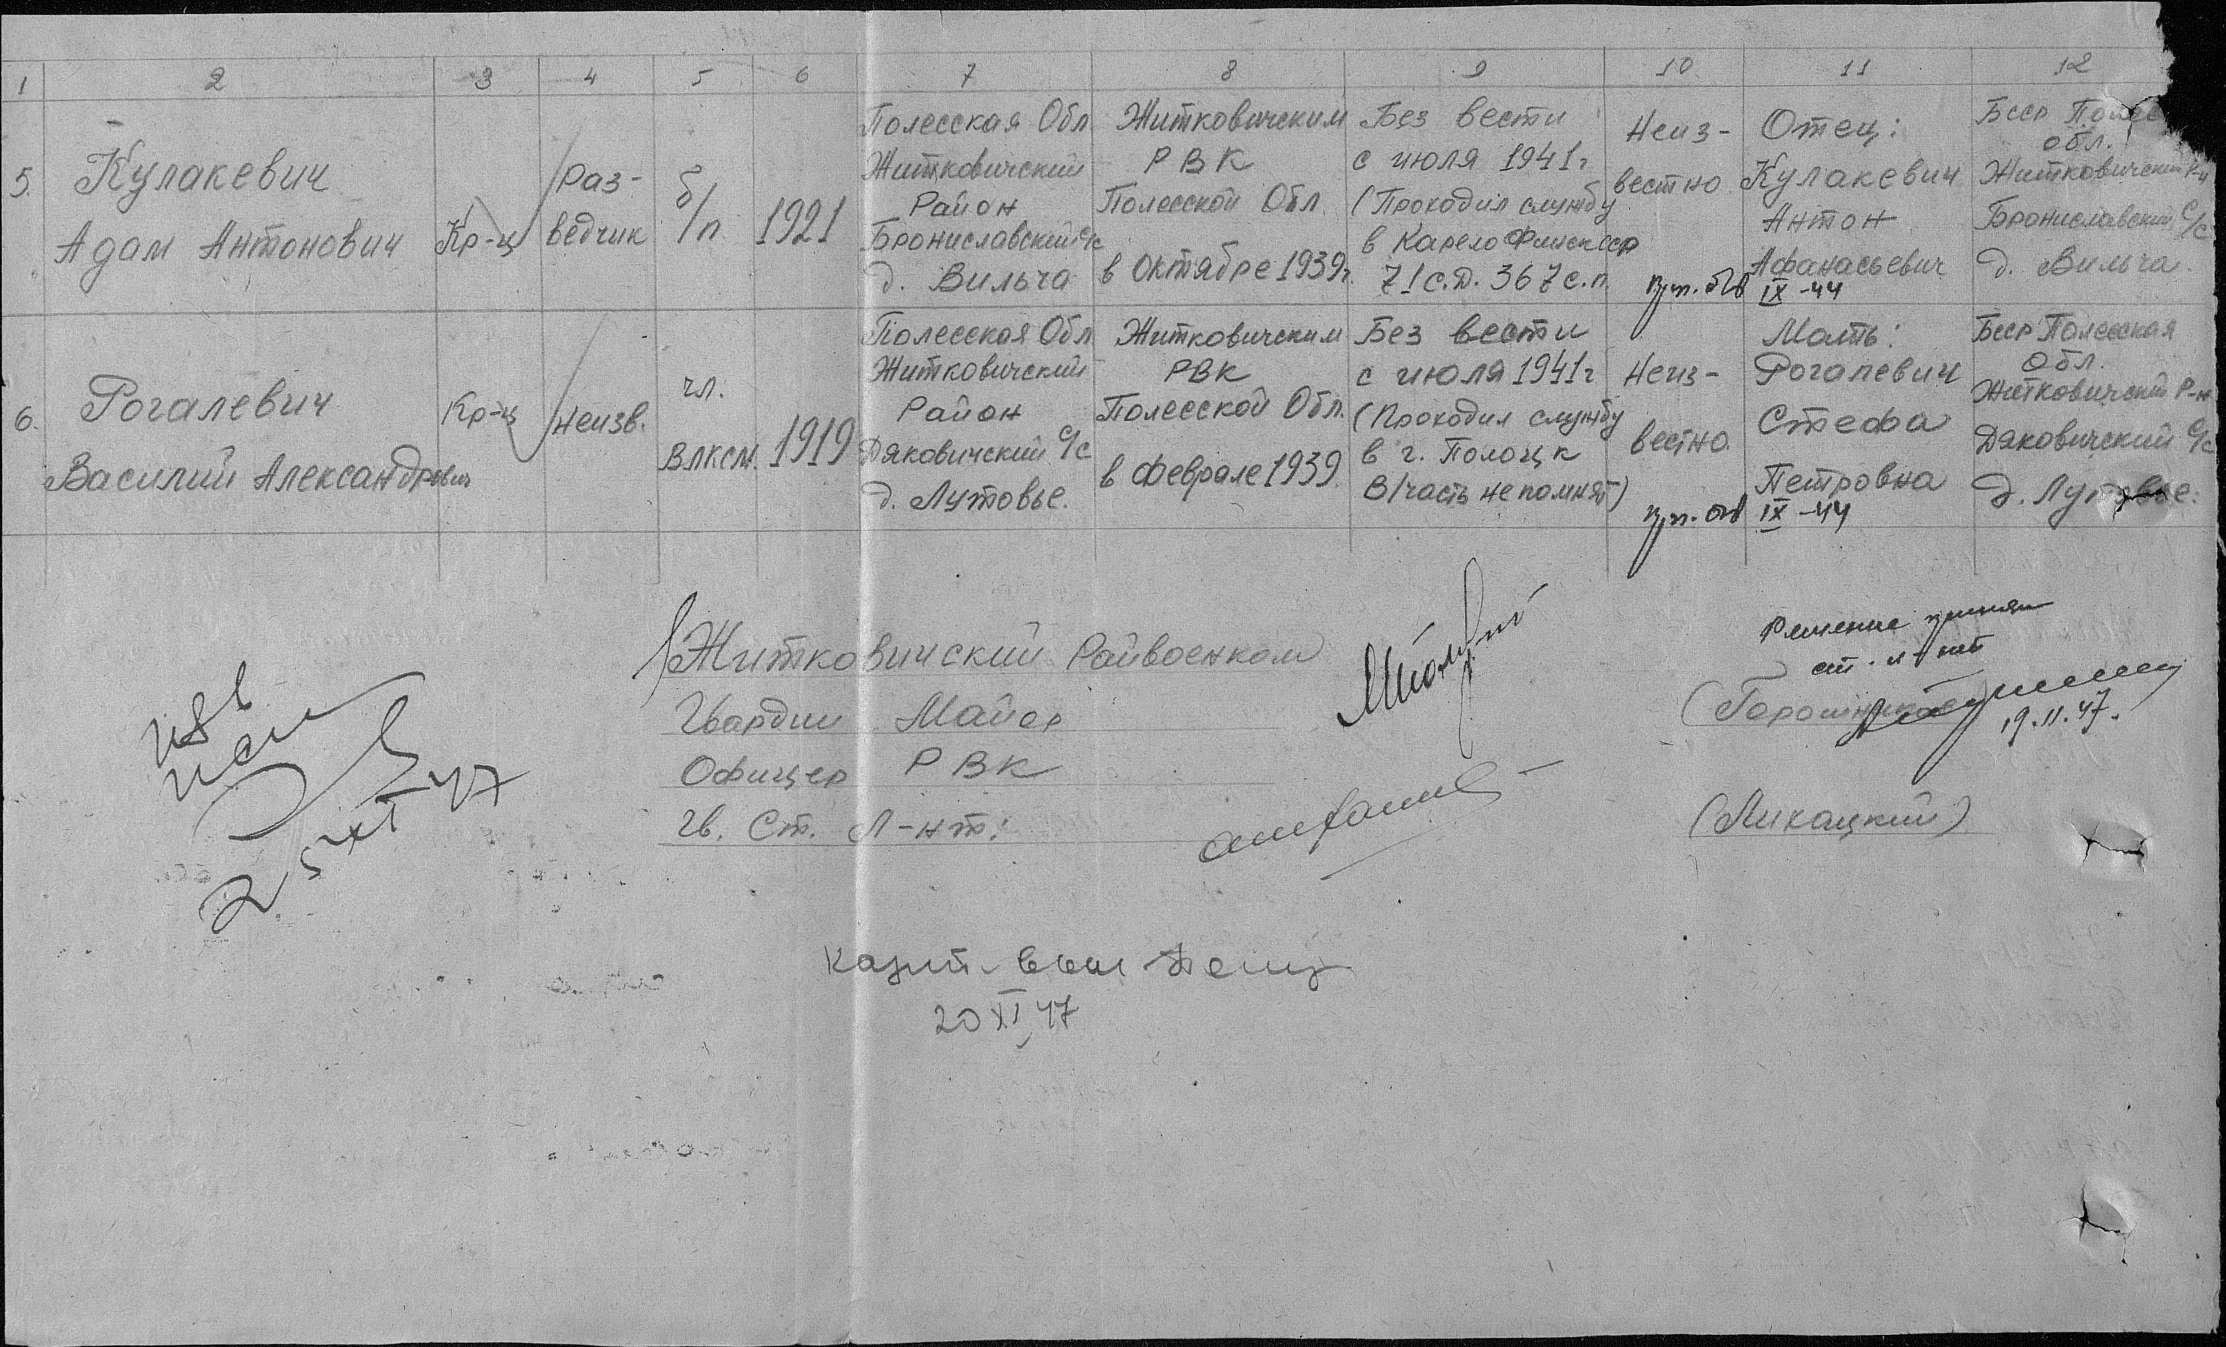 1 2 3 4 5 6 7 8 9 10 11 12
5. Кулакевич
Адам Антонович
Кр-ц
Раз-
ведчик
б/п
1921
Полесская Обл
Житковичский
Район
Брониславский с/с
д. Вильча
Житковичским
РВК
Полесской Обл.
в Октябре 1939г.
Без вести
с июля 1941г
(Проходил службу
в Карело Финск ССР
71 с.д. 367 с.п.
Неиз-
вестно
Отец:
Кулакевич
Антон
Афанасьевич
IX-44
Бсср Полес
обл.
Житковичский Р-н
Брониславский с/с
д. Вильча.
6. Рогалевич
Василий Александрович
Кр-ц
Неизв.
чл.
ВЛКСМ.
1919
Полесская Обл
Житковичский
Район
Дяковичский с/с
д. Лутовье.
Житковичским
РВК
Полесской Обл.
в феврале 1939.
Без вести
с июля 1941г
(Проходил службу
в г. Полоцк
В/часть не помнят)
Неиз-
вестно.
Мать:
Рогалевич
Стефа
Петровна
IX-44
Бсср Полесская
Обл.
Житковичский Р-н
Дяковичский с/с
д. Лутовье.
Житковичский Райвоенком
Гвардии Майор
Офицер РВК
гв. Ст. Л-нт:
Решение принял
ст. л-нт
19.11.47.
(Ликацкий)
25 XI 47
20 XI 47